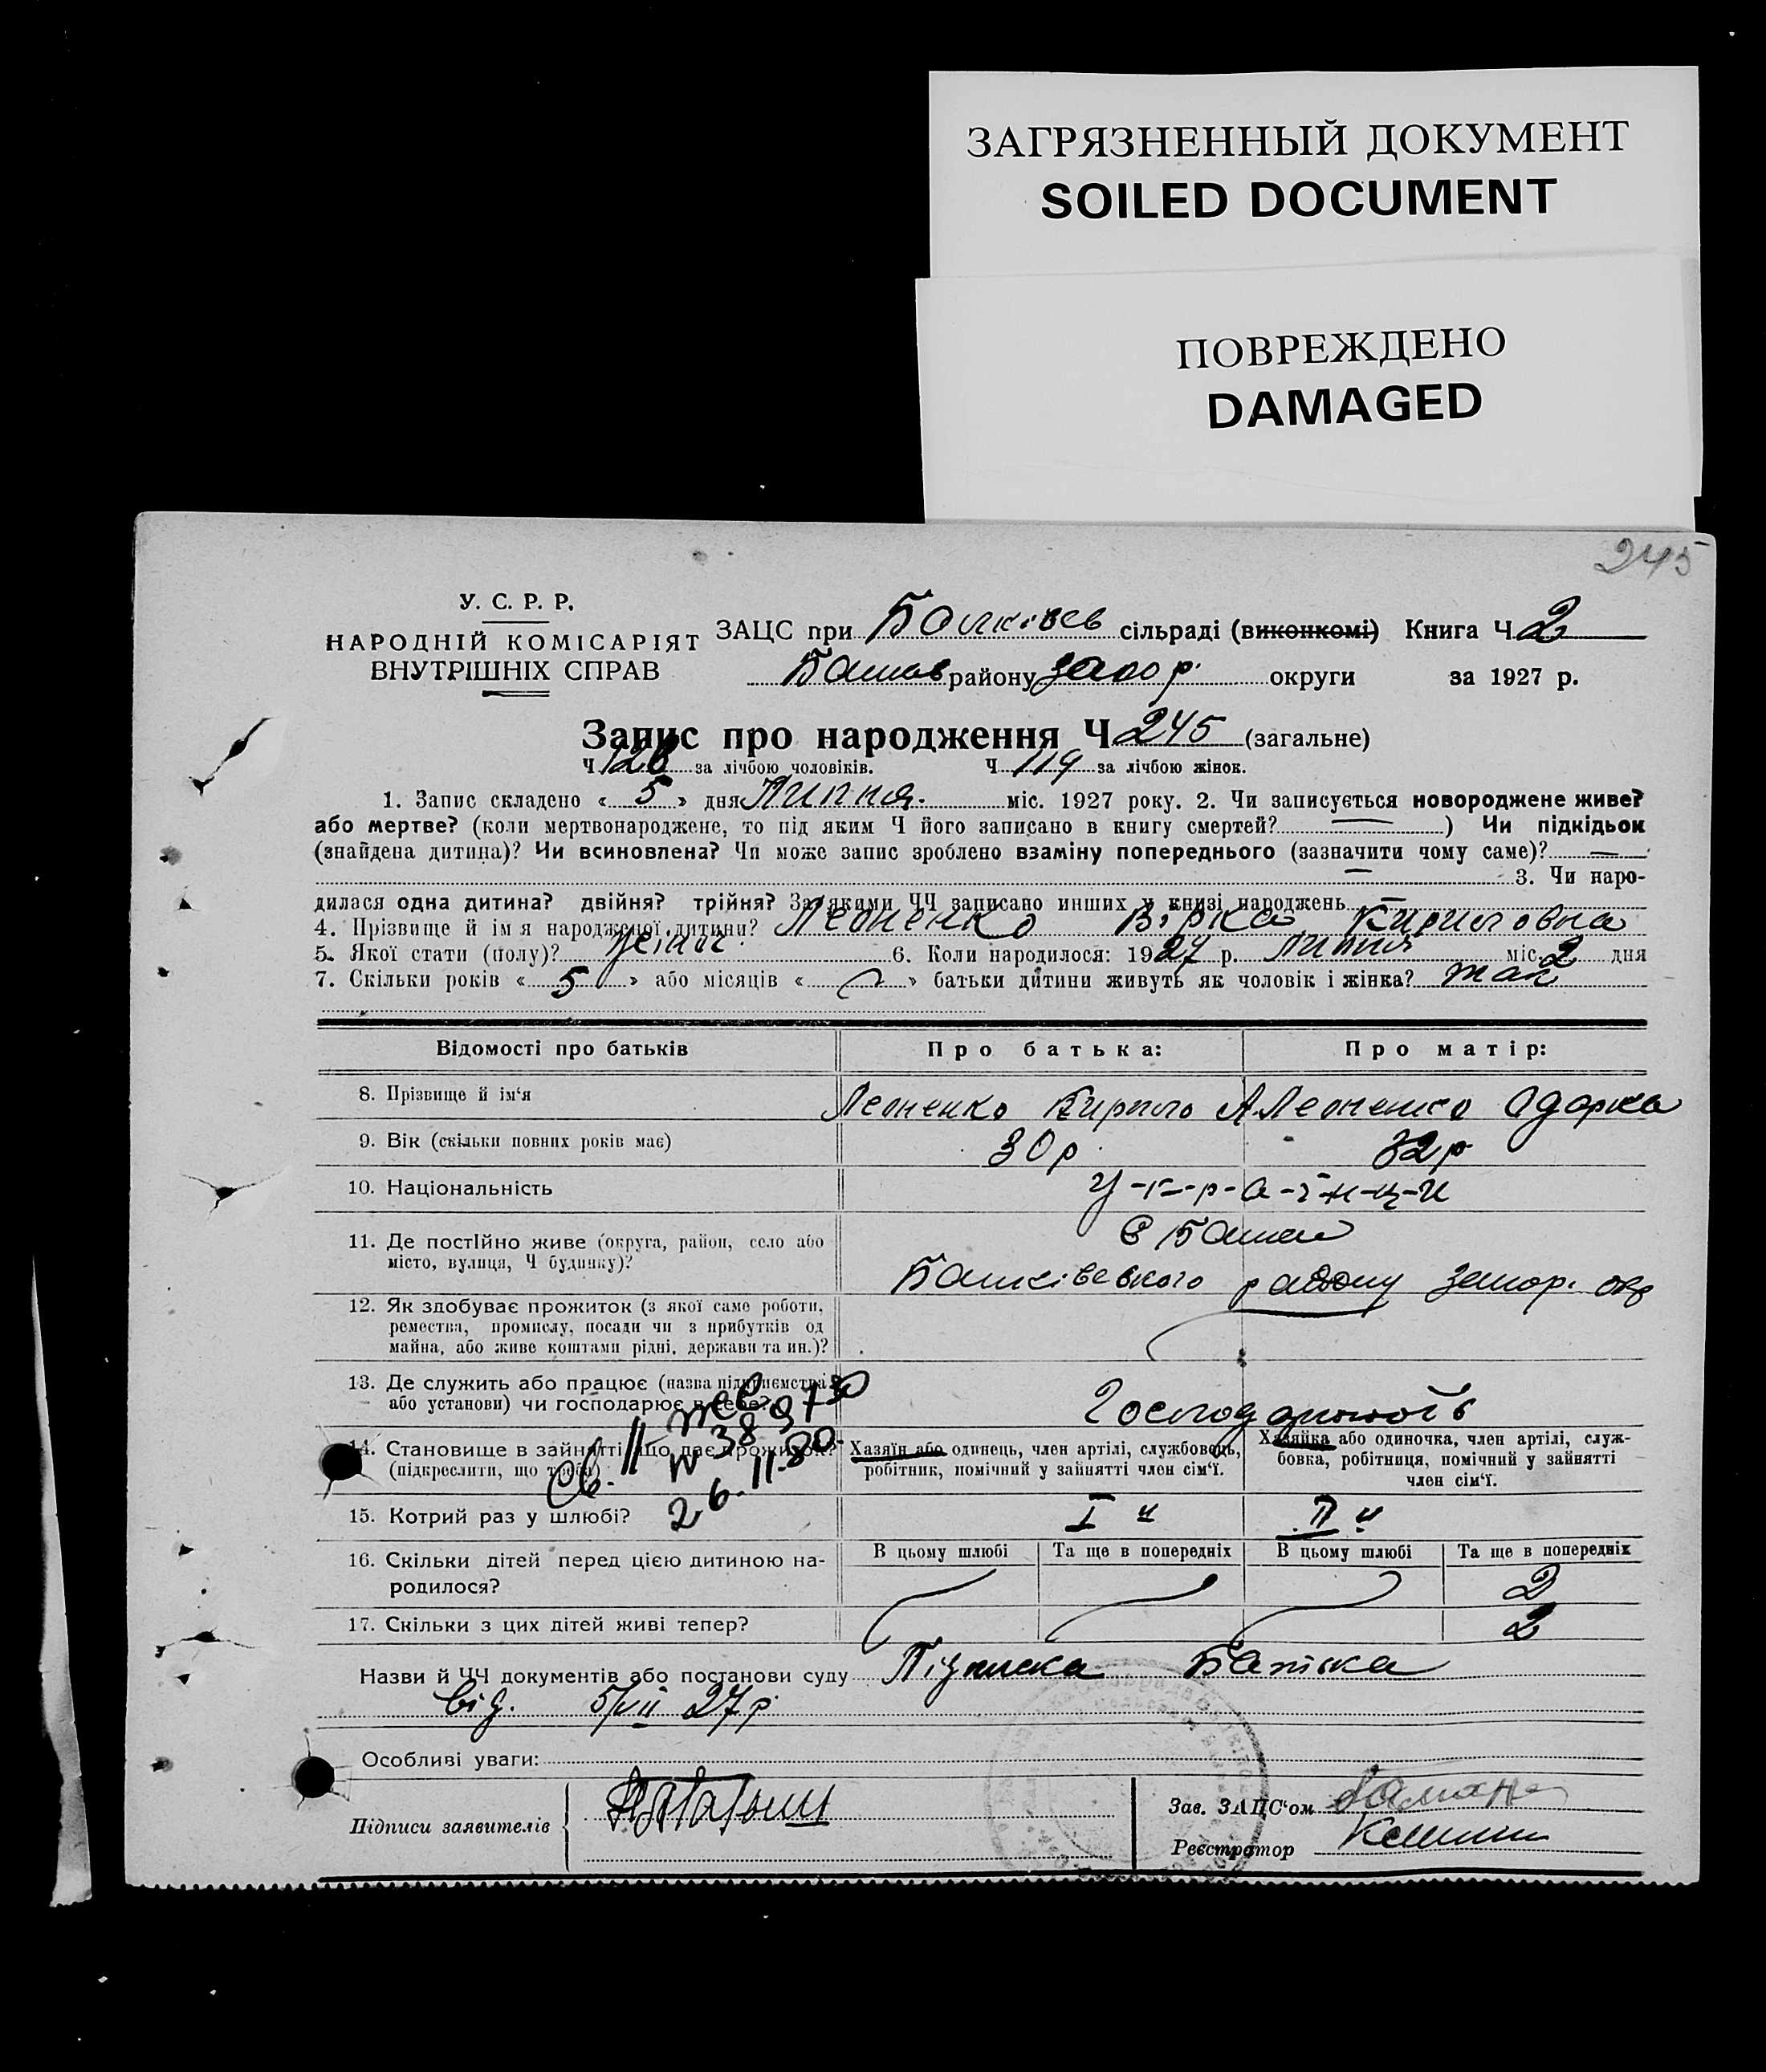 ЗАГРЯЗНЕННЫЙ ДОКУМЕНТ
SOILED DOCUMENT
ПОВРЕЖДЕНО
DAMAGED
245
У. С. Р. Р.
НАРОДНІЙ КОМІСАРІЯТ
ВНУТРІШНІХ СПРАВ
ЗАЦС при сільраді (виконкомі) Книга Ч 2
району запор. округи за 1927 р.
Запис про народження Ч 245 (загальне)
Ч 126 за лічбою чоловіків. Ч 119 за лічбою жінок.
1. Запис складено « 5 » дня Липня міс. 1927 року. 2. Чи записується новороджене живе?
або мертве? (коли мертвонароджене, то під яким Ч його записано в книгу смертей? —) Чи підкідьок
(знайдена дитина)? Чи всиновлена? Чи може запис зроблено взаміну попереднього (зазначити чому саме)? —
— 3. Чи наро-
дилася одна дитина? двійня? трійня? За якими ЧЧ записано инших у книзі народжень —
4. Прізвище й ім я народженої дитини? Леоненко Вірка Кириловна
5. Якої стати (полу)? 6. Коли народилося: 1927 р. липня міс. 2 дня
7. Скільки років « 5 » або місяців « » батьки дитини живуть як чоловік і жінка? так
Відомості про батьків Про батька: Про матір:
8. Прізвище й ім‘я Леоненко Кирило А Леоненко Одарка
9. Вік (скільки повних років має) 30 р. 32 р
10. Національність У-к-р-а-ї-н-ц-и
11. Де постійно живе (округа, район, село або
місто, вулиця, Ч будинку)?
району запор. окр
12. Як здобуває прожиток (з якої саме роботи,
ремества, промислу, посади чи з прибутків од
майна, або живе коштами рідні, держави та ин.)?
13. Де служить або працює (назва підприємства
або установи) чи господарює в себе?
14. Становище в зайнятті, що дає прожиток?
(підкреслити, що треба)
Хазяїн або одинець, член артілі, службовець,
робітник, помічний у зайнятті член сім‘ї.
Хазяйка або одиночка, член артілі, служ-
бовка, робітниця, помічний у зайнятті
член сім‘ї.
св. II
26.11.80.
15. Котрий раз у шлюбі? I й II й
16. Скільки дітей перед цією дитиною на-
родилося?
В цьому шлюбі Та ще в попередніх В цьому шлюбі Та ще в попередніх
2
17. Скільки з цих дітей живі тепер? 2
Назви й ЧЧ документів або постанови суду Підписка Батька
від. 5/VII 27 р
Особливі уваги:
Підписи заявителів
Зав. ЗАЦС‘ом
Реєстратор